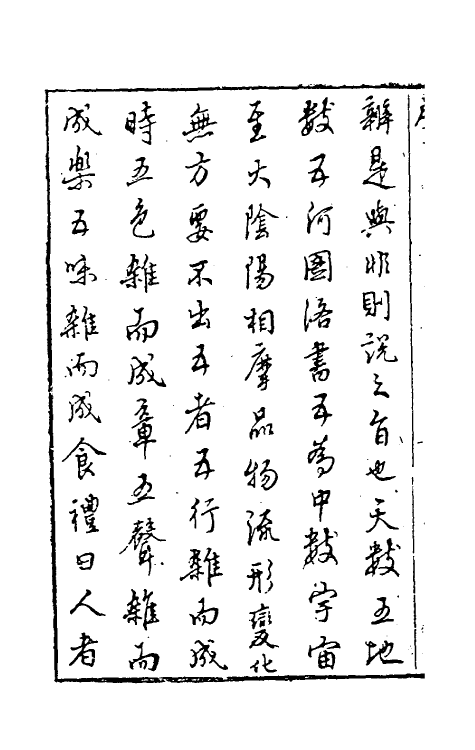 辨是與非則說之旨也天數五地
數五河圖洛書五為中數宇宙
至大陰陽相摩品物流形變化
無方要不出五者五行雜而成
時五色雜而成章五聲雜而
成樂五味雜而成食禮曰人者